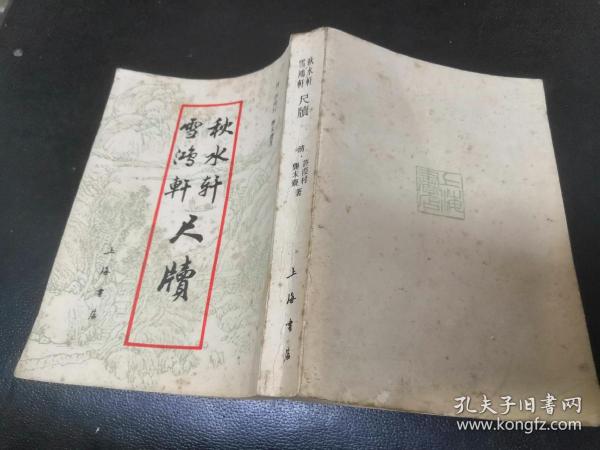 秋水轩
雪鸿軒
尺牘
上海書店
秋水軒
雪鴻軒
尺牘
清·許葭村
龔未齋著
上海書店
上海
書店
孔夫子旧书网
www.kongfz.com